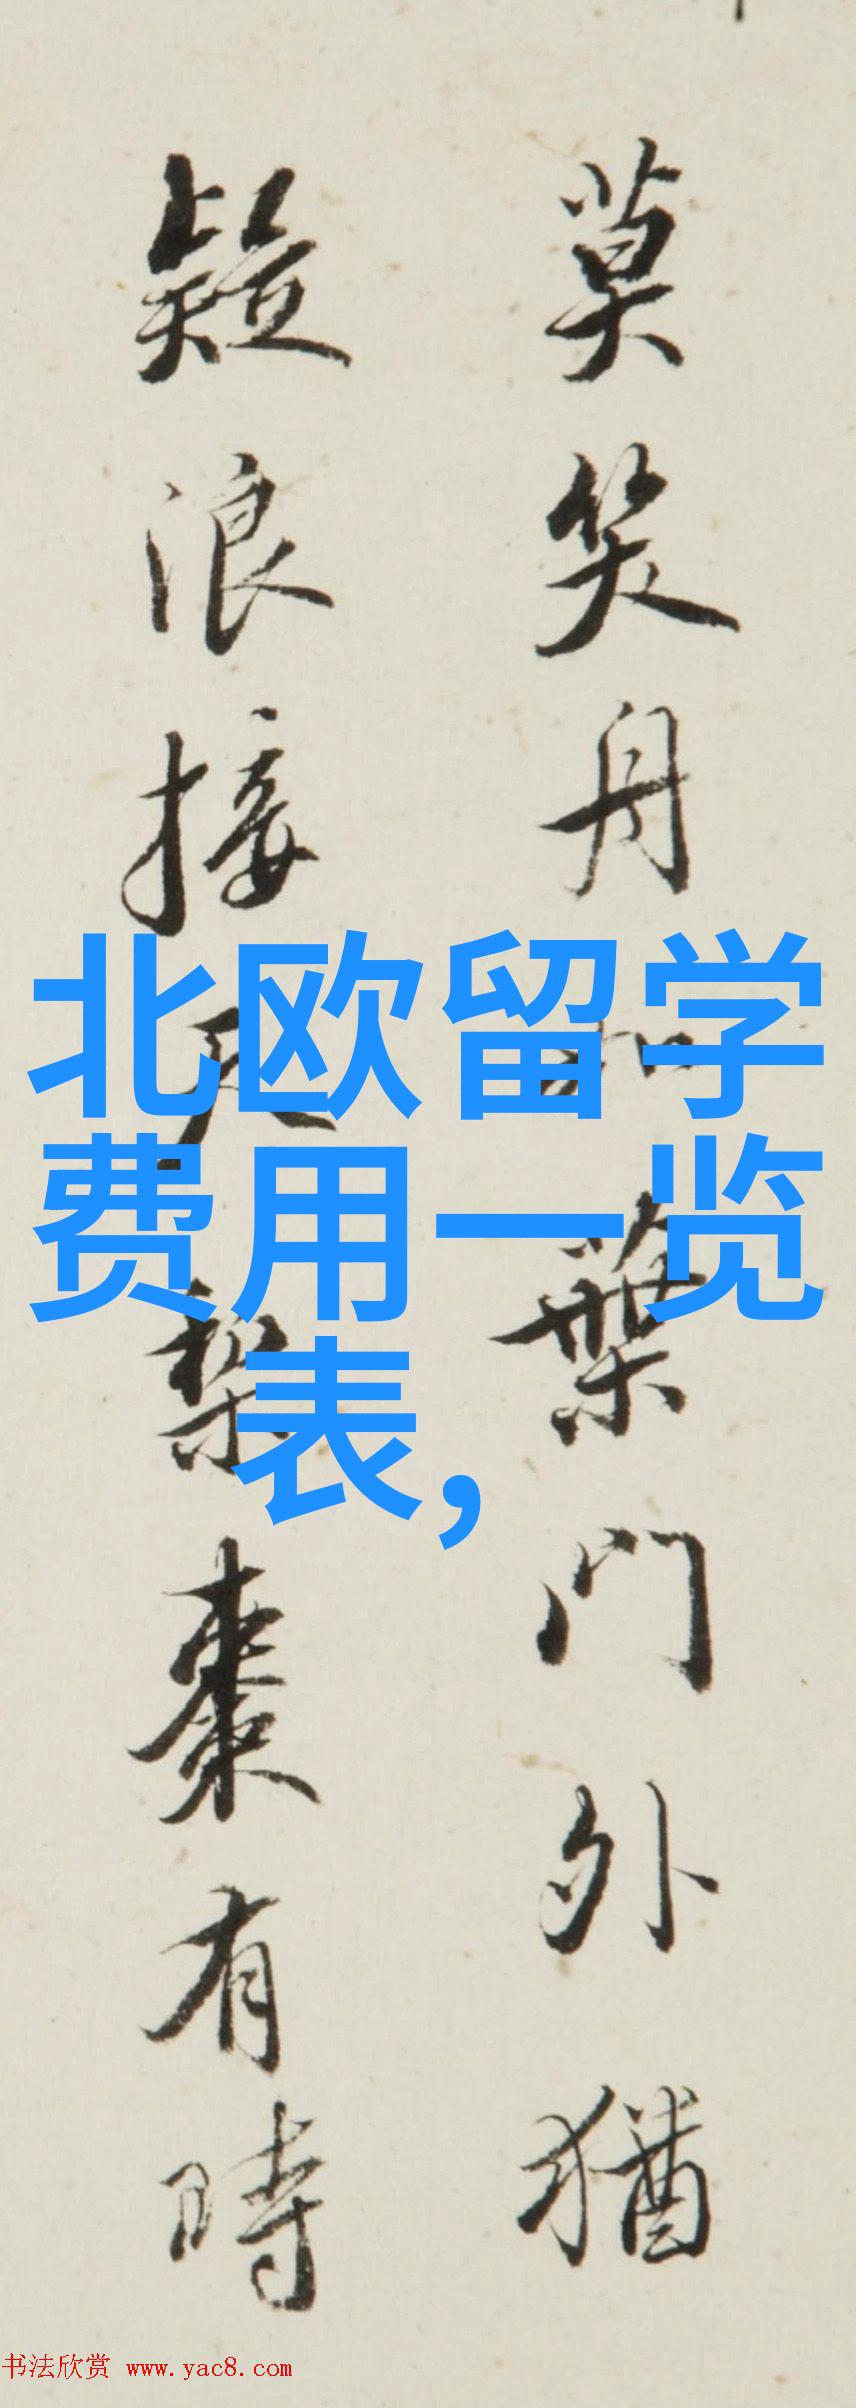 莫笑舟
葉門外猶
疑浪接天
梨棗有時
北欧留学
费用一览
表，
书法欣赏 www.yac8.com